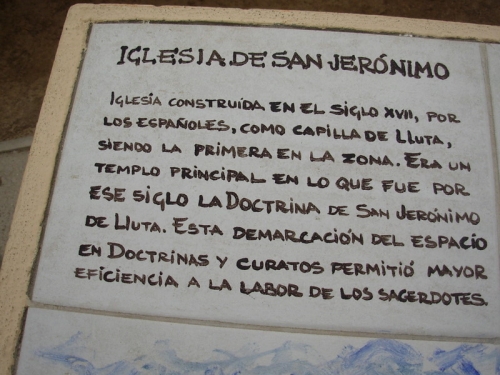 IGLESIA DE SAN JERÓNIMO
IGLESIA CONSTRUÍDA EN EL SIGLO XVII, POR
LOS ESPAÑOLES, COMO CAPILLA DE LLUTA,
SIENDO LA PRIMERA EN LA ZONA. ERA UN
TEMPLO PRINCIPAL EN LO QUE FUE POR
ESE SIGLO LA DOCTRINA DE SAN JERÓNIMO
DE LLUTA. ESTA DEMARCACIÓN DEL ESPACIO
EN DOCTRINAS Y CURATOS PERMITIÓ MAYOR
EFICIENCIA A LA LABOR DE LOS SACERDOTES.